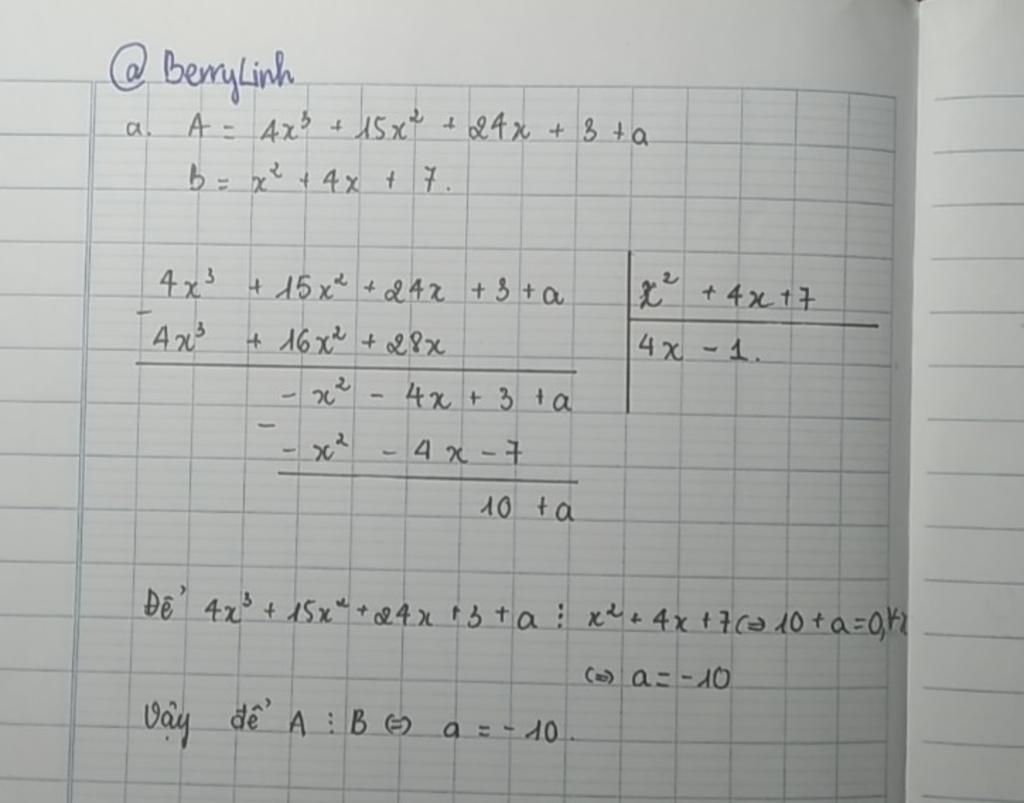 @ BerryLinh
a. A = 4x³ + 15x² + 24x + 3 + a
B = x² + 4x + 7.
4x³ + 15x² + 24x + 3 + a | x² + 4x + 7
- 4x³ + 16x² + 28x | 4x - 1.
- x² - 4x + 3 + a
- - x² - 4x - 7
10 + a
Để 4x³ + 15x² + 24x + 3 + a ⋮ x² + 4x + 7 ⇔ 10 + a = 0, ∀x
⇔ a = -10
Vậy để A ⋮ B ⇔ a = -10.